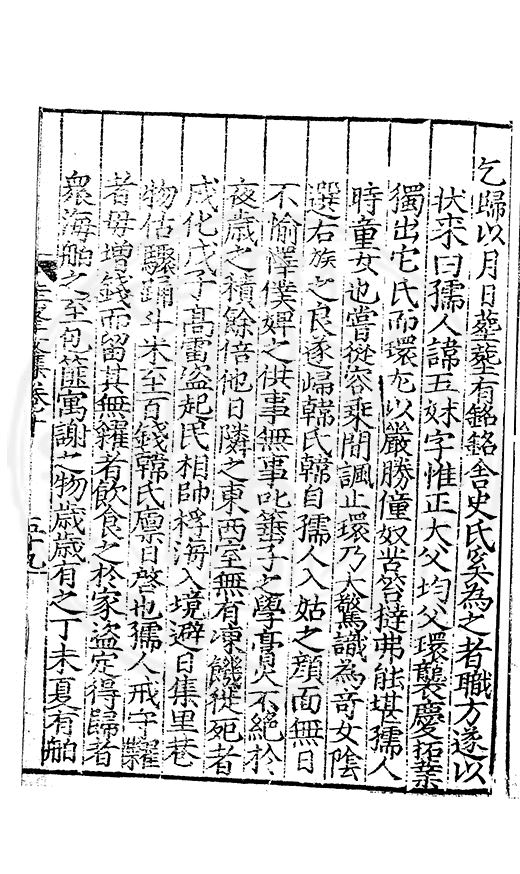 乞歸以月日塟塟有銘銘舍史氏奚為之者職方遂以
状来曰孺人諱五妹字惟正大父均父環襲慶拓業
獨出它氏而環尤以嚴勝僮奴苦笞撻弗能堪孺人
時童女也嘗從容乘間諷止環乃大驚識為竒女陰
選右族之良遂歸韓氏韓自孺人入姑之顔面無日
不愉懌僕婢之供事無事叱箠子之學膏火不絕於
夜歳之積餘倍他日隣之東西室無有凍饑徙死者
成化戊子髙雷盗起民相帥桴海入境避日集里巷
物估驟踊斗米至百錢韓氏廪日啓也孺人戒守糶
者毋增錢而留其無糴者飲食之於家盗定得歸者
衆海舶之至包匭寓謝之物歳歳有之丁未夏有舶